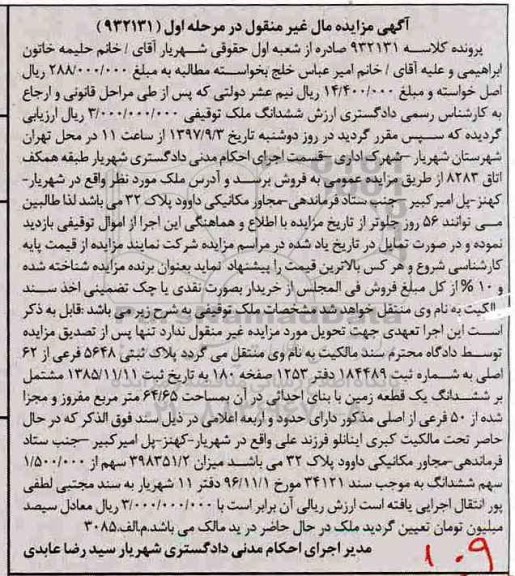 آگهی مزایده مال غیر منقول در مرحله اول ( ۹۳۲۱۳۱ )
پرونده کلاسه ۹۳۲۱۳۱ صادره از شعبه اول حقوقی شهریار آقای / خانم حلیمه خاتون
ابراهیمی و علیه آقای / خانم امیر عباس خلج بخواسته مطالبه به مبلغ ۲۸۸/۰۰۰/۰۰۰ ریال
اصل خواسته و مبلغ ۱۴/۴۰۰/۰۰۰ ریال نیم عشر دولتی که پس از طی مراحل قانونی و ارجاع
به کارشناس رسمی دادگستری ارزش ششدانگ ملک توقیفی ۳/۰۰۰/۰۰۰/۰۰۰ ریال ارزیابی
گردیده که سپس مقرر گردید در روز دوشنبه تاریخ ۱۳۹۷/۹/۳ از ساعت ۱۱ در محل تهران
شهرستان شهریار –شهرک اداری –قسمت اجرای احکام مدنی دادگستری شهریار طبقه همکف
اتاق ۸۲۸۳ از طریق مزایده عمومی به فروش برسد و آدرس ملک مورد نظر واقع در شهریار-
کهنز-پل امیر کبیر –جنب ستاد فرماندهی-مجاور مکانیکی داوود پلاک ۳۲ می باشد لذا طالبین
می توانند ۵۶ روز جلوتر از تاریخ مزایده با اطلاع و هماهنگی این اجرا از اموال توقیفی بازدید
نموده و در صورت تمایل در تاریخ یاد شده در مراسم مزایده شرکت نمایند مزایده از قیمت پایه
کارشناسی شروع و هر کس بالاترین قیمت را پیشنهاد نماید بعنوان برنده مزایده شناخته شده
و ۱۰ % از کل مبلغ فروش فی المجلس از خریدار بصورت نقدی یا چک تضمینی اخذ سند
مالکیت به نام وی منتقل خواهد شد مشخصات ملک توقیفی به شرح زیر می باشد :قابل به ذکر
است این اجرا تعهدی جهت تحویل مورد مزایده غیر منقول ندارد تنها پس از تصدیق مزایده
توسط دادگاه محترم سند مالکیت به نام وی منتقل می گردد پلاک ثبتی ۵۶۴۸ فرعی از ۶۲
اصلی به شماره ثبت ۱۸۴۴۸۹ دفتر ۱۲۵۳ صفحه ۱۸۰ به تاریخ ثبت ۱۳۸۵/۱۱/۱۱ مشتمل
بر ششدانگ یک قطعه زمین با بنای احداثی در آن بمساحت ۶۴/۶۵ متر مربع مفروز و مجزا
شده از ۵۰ فرعی از اصلی مذکور دارای حدود و اربعه اعلامی در ذیل سند فوق الذکر که در حال
حاضر تحت مالکیت کبری اینانلو فرزند علی واقع در شهریار-کهنز-پل امیرکبیر –جنب ستاد
فرماندهی-مجاور مکانیکی داوود پلاک ۳۲ می باشد میزان ۳۹۸۳۵۱/۲ سهم از ۱/۵۰۰/۰۰۰
سهم ششدانگ به موجب سند ۳۴۱۲۱ مورخ ۹۶/۱۱/۱ دفتر ۱۱ شهریار به سند مجتبی لطفی
پور انتقال اجرایی یافته است ارزش ریالی آن برابر است با ۳/۰۰۰/۰۰۰/۰۰۰ ریال معادل سیصد
میلیون تومان تعیین گردید ملک در حال حاضر در ید مالک می باشد.م.الف.۳۰۸۵
مدیر اجرای احکام مدنی دادگستری شهریار سید رضا عابدی
۱۰۹